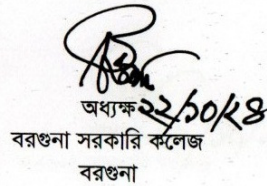 অধ্যক্ষ ২২/১০/২৪
বরগুনা সরকারি কলেজ
বরগুনা